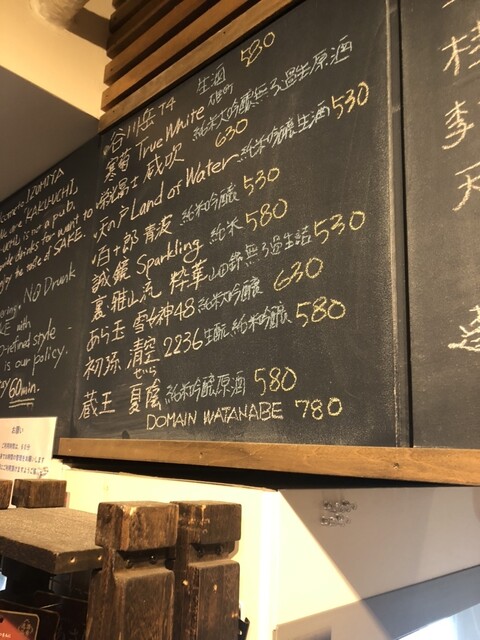 谷川岳 T4 生酒 530
True White 純米大吟醸無ろ過生原酒 630
Land of Water 純米吟醸生酒 530
百十郎 青波 純米吟醸 530
誠鏡 Sparkling 純米 580
裏雅山流 粋華 山田錦無ろ過生詰 530
あら玉 雪女神48 純米大吟醸 630
初孫 清空 2236 生酛純米吟醸 580
せいら
蔵王 夏陰 純米吟醸原酒 580
DOMAIN WATANABE 780
IZUMIYA
"KAKUUCHI"
is not a pub.
drinks for want to
the taste of SAKE.
No Drunk
with
-refined style
is our policy.
60min.
お願い
桂
李
天